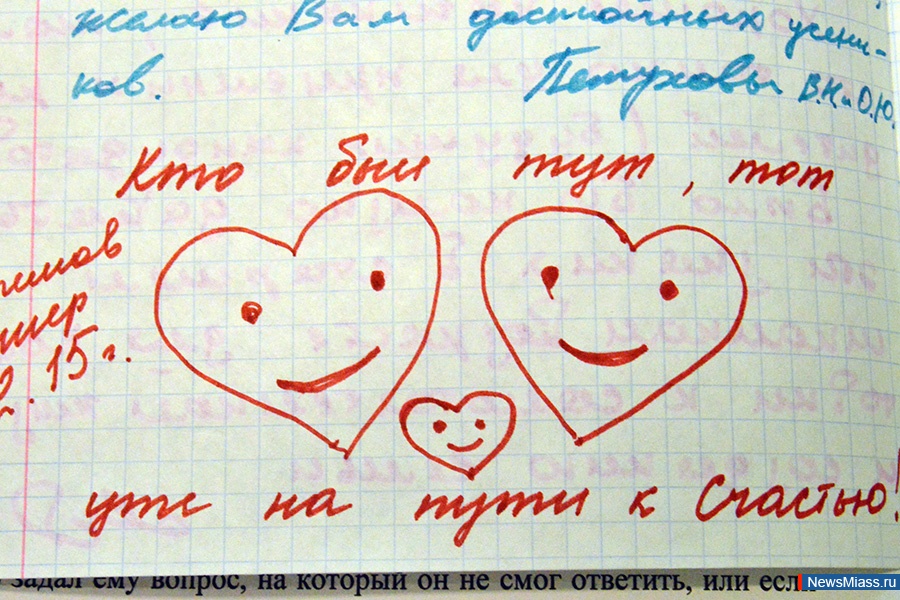 желаю Вам достойных учени-
ков. Петуховы В.Н и О.Ю.
Кто был тут, тот
15 г.
уже на пути к Счастью!
задал ему вопрос, на который он не смог ответить, или если
NewsMiass.ru